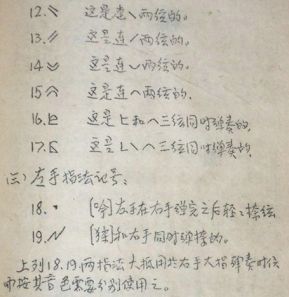 12. 〃 这是连丶两弦的。
13. 〃 这是连/两弦的。
14. 这是连﹀两弦的。
15. 这是连︿两弦的.
16. 这是ㄴ和︿三弦同时弹奏的,
17. 这是L\︿三弦同时弹奏的。
(三)左手指法记号:
18. 〔吟〕左手在右手弹完之后轻〻揉弦
19. 〔猱〕和右手同时弹揉的。
上列18.19.两指法大抵用於右手大指弹奏时
而按其音色需要分别使用之。